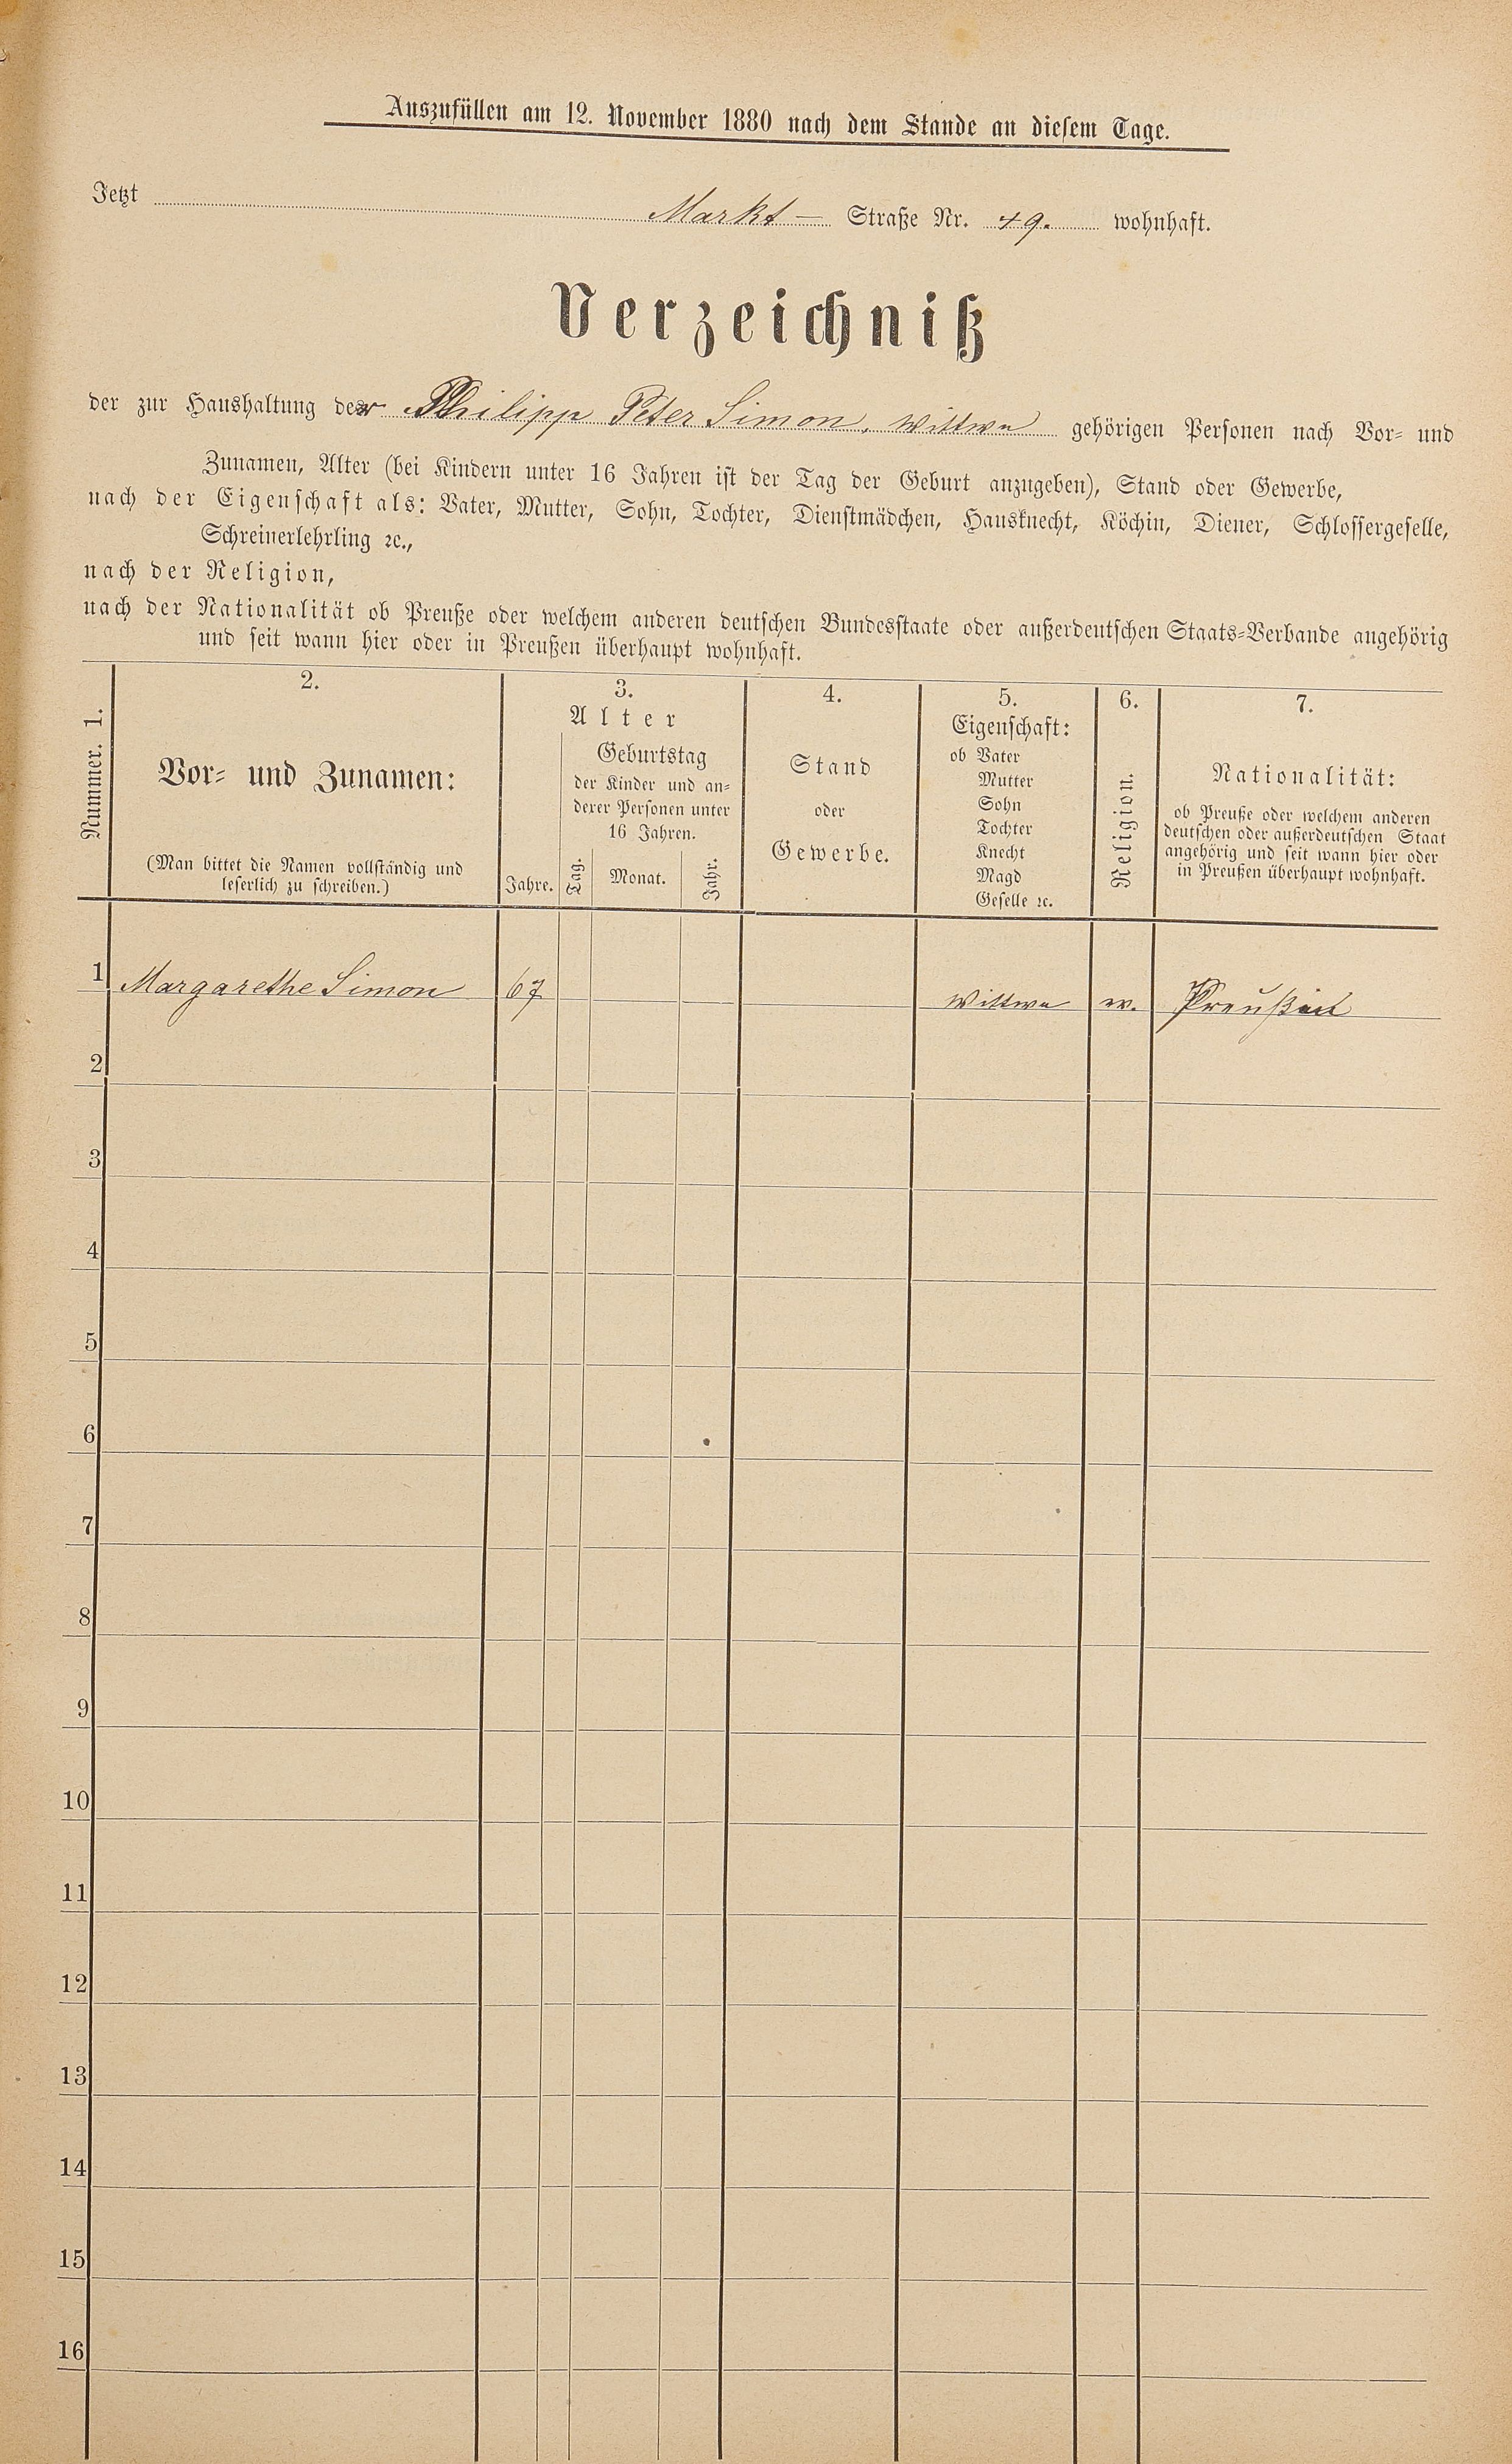 Auszufüllen am 12. November 1880 nach dem Stande an diesem Tage.
Jetzt Markt- Straße Nr. 49. wohnhaft.
Verzeichniß
der zur Haushaltung der Philipp Peter Simon, Wittwe gehörigen Personen nach Vor- und
Zunamen, Alter (bei Kindern unter 16 Jahren ist der Tag der Geburt anzugeben), Stand oder Gewerbe,
nach der Eigenschaft als: Vater, Mutter, Sohn, Tochter, Dienstmädchen, Hausknecht, Köchin, Diener, Schlossergeselle,
Schreinerlehrling ꝛc.,
nach der Religion,
nach der Nationalität ob Preuße oder welchem anderen deutschen Bundesstaate oder außerdeutschen Staats-Verbande angehörig
und seit wann hier oder in Preußen überhaupt wohnhaft.
Nummer. 1.
2.
Vor- und Zunamen:
(Man bittet die Namen vollständig und
leserlich zu schreiben.)
3.
Alter
Jahre.
Geburtstag
der Kinder und an-
derer Personen unter
16 Jahren.
Tag.
Monat.
Jahr.
4.
Stand
oder
Gewerbe.
5.
Eigenschaft:
ob Vater
Mutter
Sohn
Tochter
Knecht
Magd
Geselle ꝛc.
6.
Religion.
7.
Nationalität:
ob Preuße oder welchem anderen
deutschen oder außerdeutschen Staat
angehörig und seit wann hier oder
in Preußen überhaupt wohnhaft.
1 Margarethe Simon 67 Wittwe ev. Preußin
2
3
4
5
6
7
8
9
10
11
12
13
14
15
16